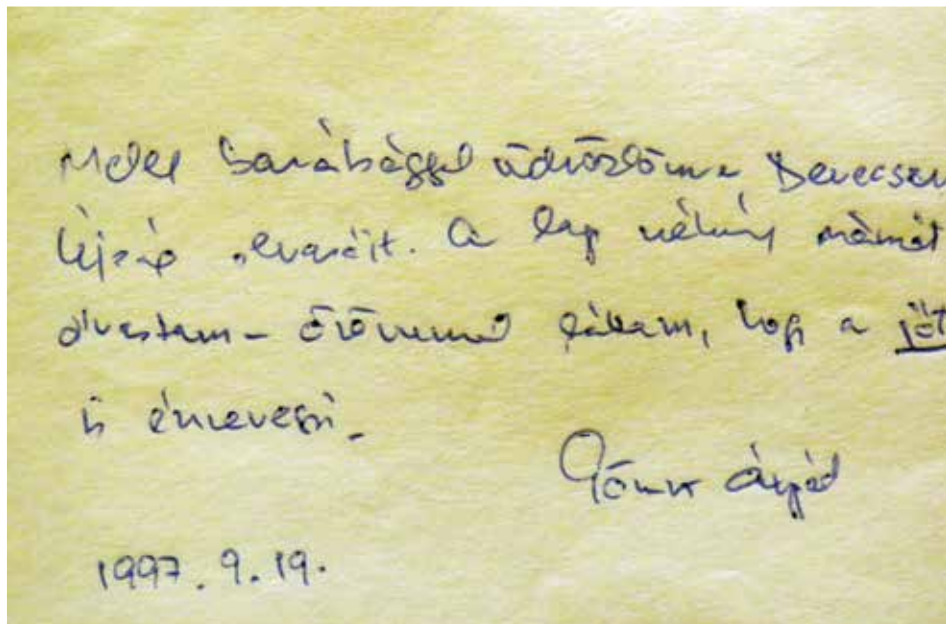 Meleg barátsággal üdvözlöm a Devecseri
Újság olvasóit. A lap néhány számát
olvastam – örömmel látom, hogy a jót
is észreveszi.
Göncz Árpád
1997. 9. 19.